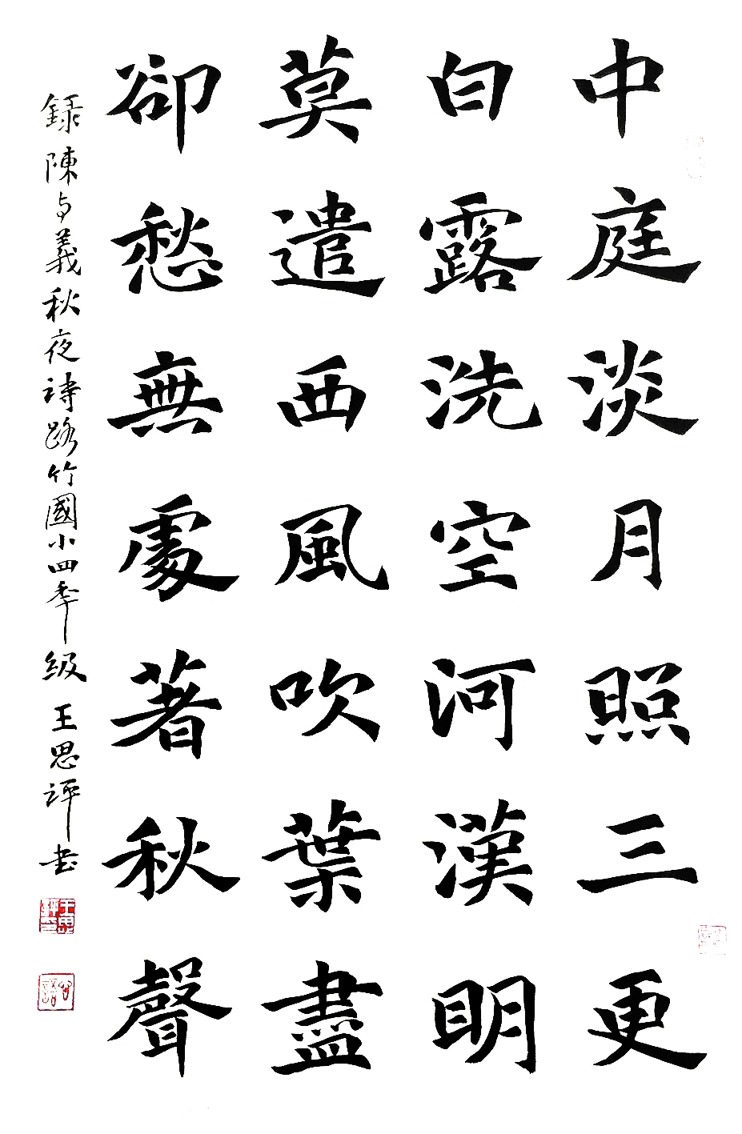 中庭淡月照三更
白露洗空河漢明
莫遣西風吹葉盡
卻愁無處著秋聲
錄陳与義秋夜詩路竹國小四季級王思評书